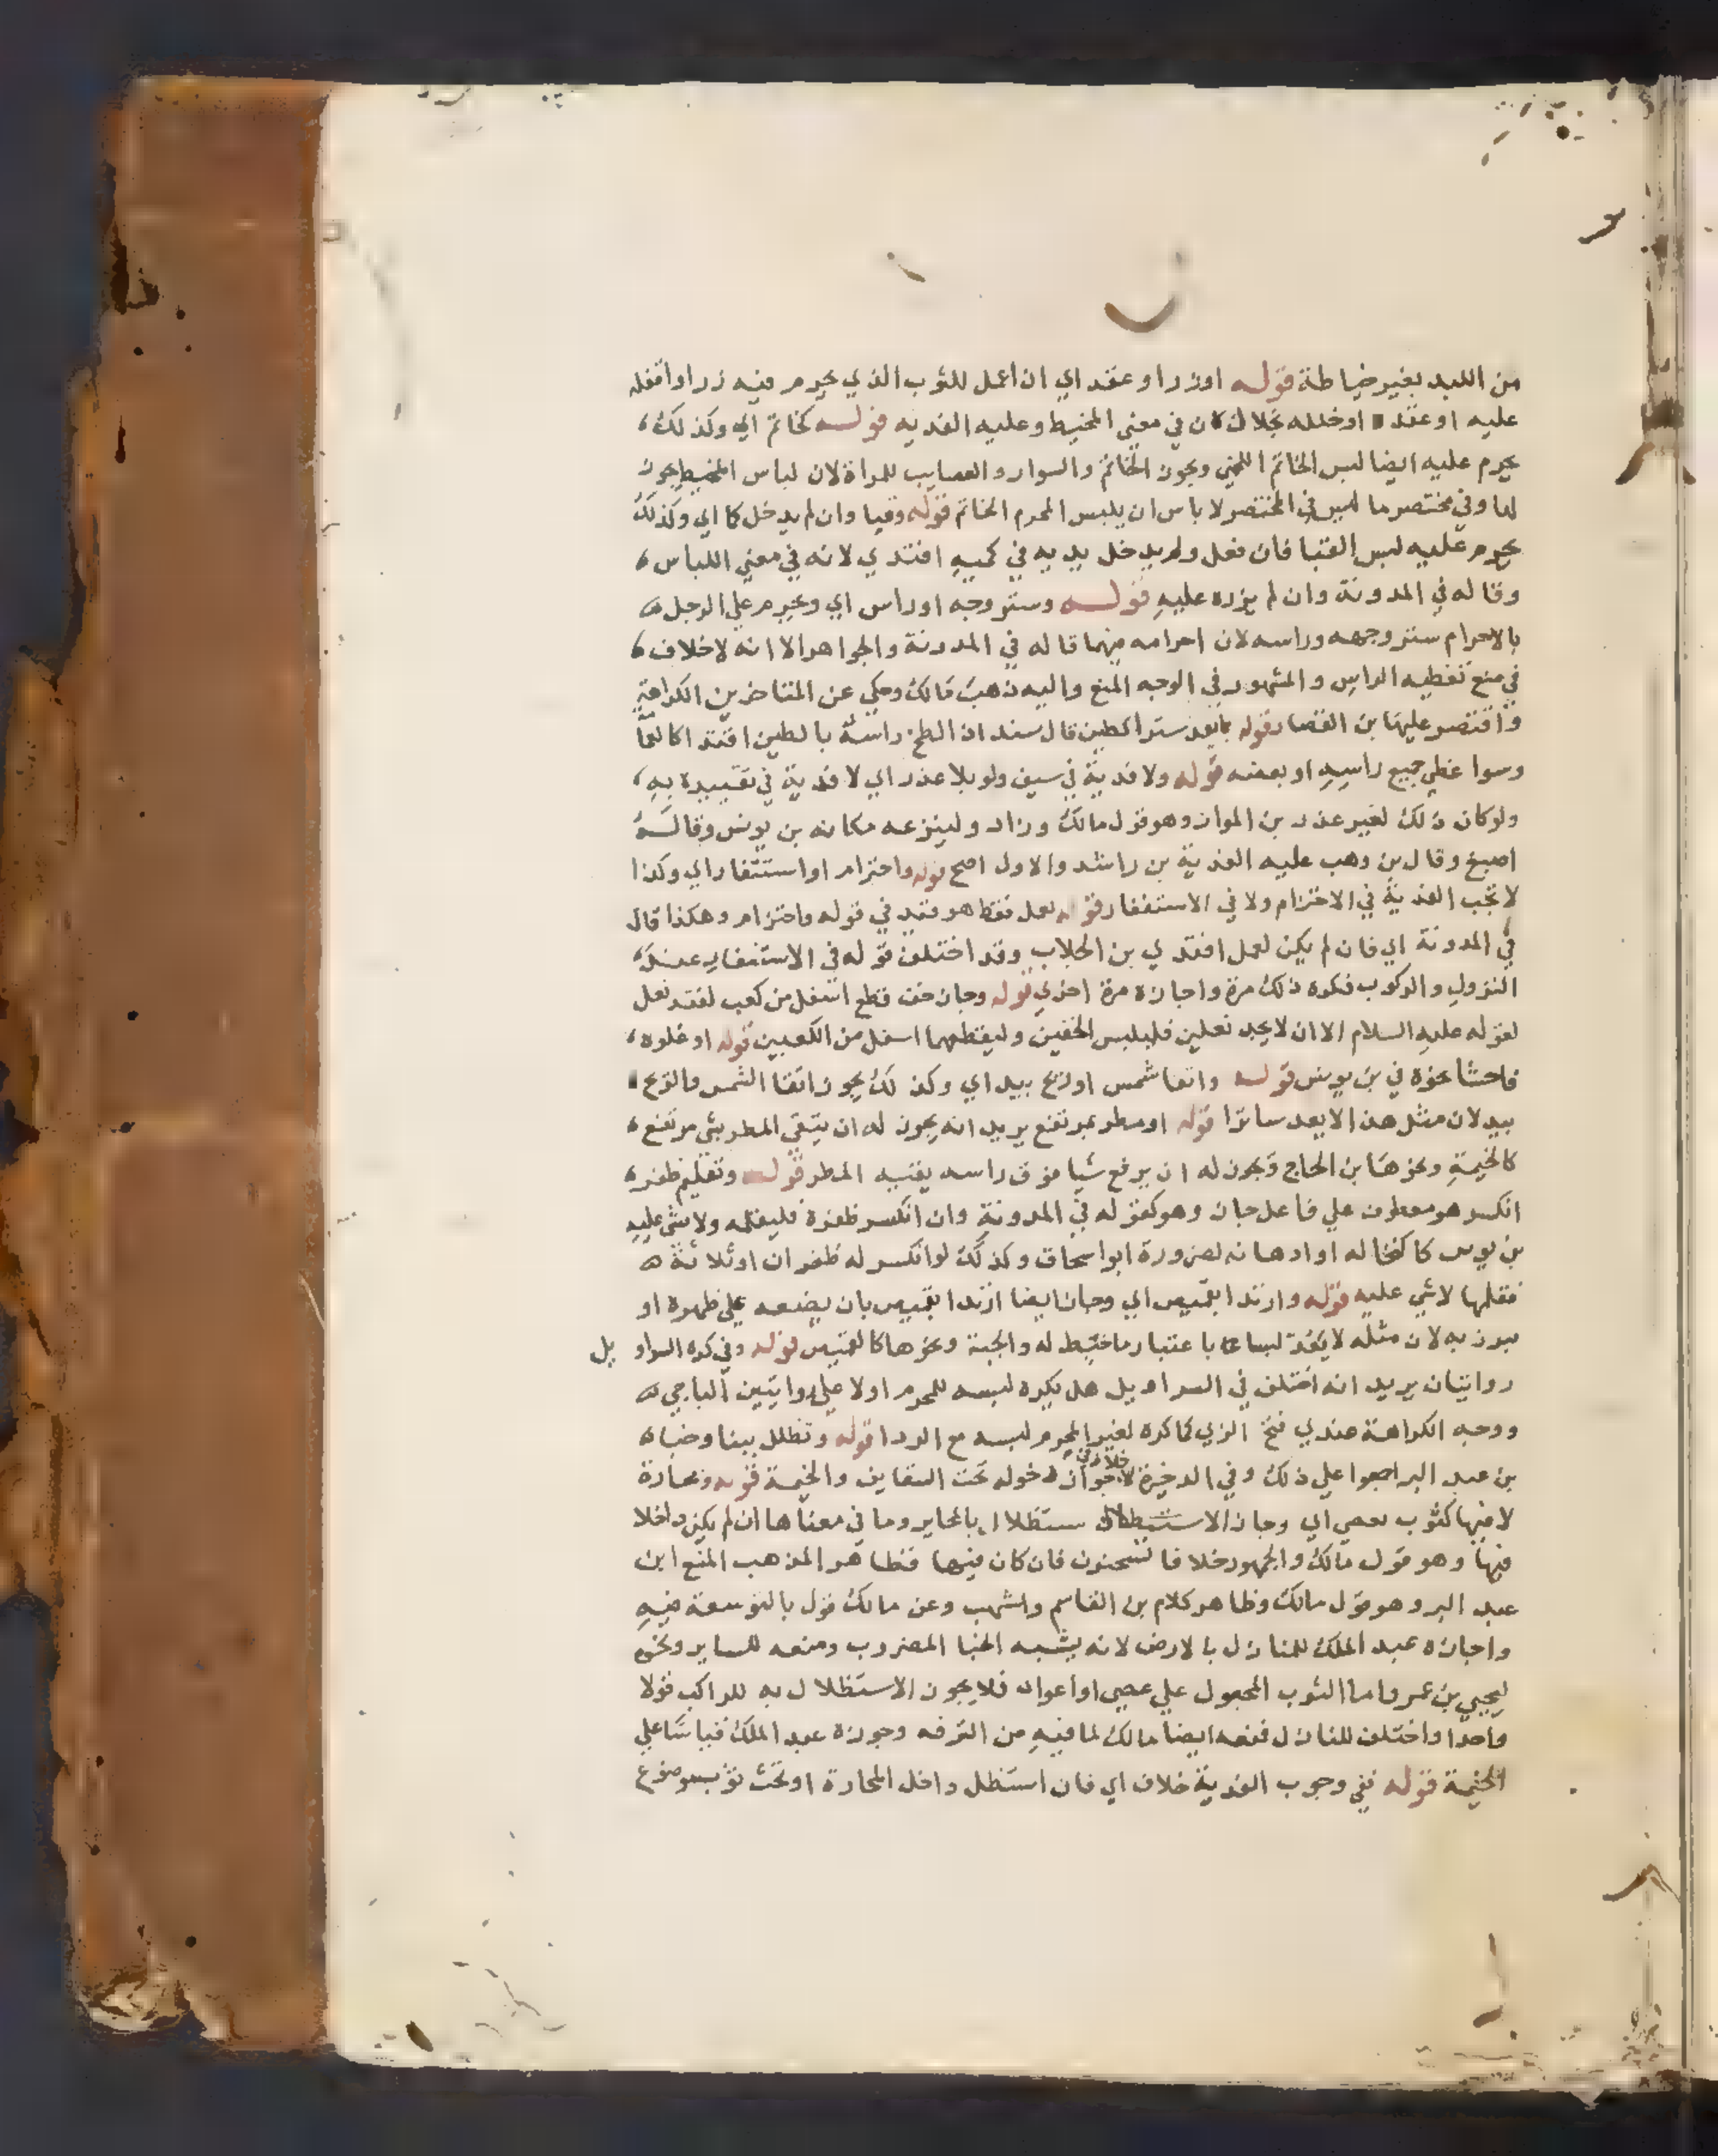 من اللبد بغير خياطة قوله او زر او عقد اي ان اعمل للثوب الذي يحرم فيه زرا او اقفله
عليه او عقده او خلله بخلال كان في معنى المخيط وعليه الفديه قوله كخاتم اي وكذلك
يحرم عليه ايضا لبس الخاتم اللخمي ويجوز الخاتم والسوار والعصايب للمراة لان لباس المخيط يجوز
لها وفي مختصر ما ليس في المختصر لا باس ان يلبس المحرم الخاتم قوله وقبا وان لم يدخل كما اي وكذلك
يحرم عليه لبس القبا فان فعل ولم يدخل يديه في كميه افتدي لانه في معنى اللباس
وقاله في المدونة وان لم يزره عليه قوله وستر وجه او راس اي ويحرم علي الرجل
بالاحرام ستر وجهه وراسه لان احرامه فيهما قاله في المدونة والجواهر الا انه لا خلاف
في منع تغطيه الراس والمشهور في الوجه المنع واليه ذهب مالك وحكي عن المتاخرين الكراهة
واقتصر عليها بن القصار قوله بما يعد سترا كطين قال سند ان الطخ راسه بالطين افتدا كالعما
وسوا غطي جميع راسه او بعضه قوله ولا فدية في سيف ولو بلا عذر اي لا فدية في تقييده به
ولو كان ذلك لغير عذر بن المواز وهو قول مالك وزاد ولينزعه مكانه بن يونس وقاله
اصبغ وقال بن وهب عليه الفدية بن راشد والاول اصح قوله واحتزام او استثفار اي وكذا
لا تجب الفدية في الاحتزام ولا في الاستثفار قوله لعمل فقط هو قيد في قوله واحتزام وهكذا قال
في المدونة اي فان لم يكن لعمل افتدي بن الجلاب وقد اختلف قوله في الاستثفار عند
النزول والركوب فكره ذلك مرة واجازه مرة اخري قوله وجاز خف قطع اسفل من كعب لفقد نعل
لقوله عليه السلام الا ان لا يجد نعلين فليلبس الخفين وليقطعهما اسفل من الكعبين قوله او غلوه
فاحشا نحوه في بن يونس قوله واتقا شمس او ريح بيد اي وكذلك يجوز اتقا الشمس والريح
بيد لان مثل هذا لا يعد ساترا قوله او مطر بمرتفع يريد انه يجوز له ان يتقي المطر بشي مرتفع
كالخيمة ونحوها بن الحاج ويجوز له ان يرفع شيا فوق راسه يقيه المطر قوله وتقليم ظفر
انكسر هو معطوف علي فاعل جاز وهو كقوله في المدونة وان انكسر ظفره فليقلمه ولا شي عليه
بن يونس كاكتحاله او ادهانه لضرورة ابو اسحاق وكذلك لو انكسر له ظفران او ثلاثة
فقلمها لا شي عليه قوله وارتدا بقميص اي وجاز ايضا ارتدا بقميص بان يضعه علي ظهره او
به لان مثله لا يعد لبسا باعتبار ما خيط له والجبة ونحوها كالقميص قوله وفي كره السراويل
روايتان يريد انه اختلف في السراويل هل يكره لبسه للمحرم اولا علي روايتين الباجي
ووجه الكراهة عندي قبح الزي كما كره لغير المحرم لبسه مع الردا قوله وتظلل ببنا وخبا
بن عبد البر اجمعوا علي ذلك وفي الدخيرة لا خلاف في جواز دخوله تحت السقايف والخيمة قوله ومحارة
لا فيها كثوب بعصي اي وجاز الاستظلال بالمحاير وما في معناها ان لم يكن داخلا
فيها وهو قول مالك والجمهور خلافا لسحنون فان كان فيها فظاهر المذهب المنع ابن
عبد البر وهو قول مالك وظاهر كلام بن القاسم واشهب وعن مالك قول بالتوسعة فيه
واجازه عبد الملك للنازل بالارض لانه يشبه الخبا المضروب ومنعه للساير ونحوه
ليحيي بن عمر واما الثوب المجعول علي عصي او اعواد فلا يجوز الاستظلال به للراكب قولا
واحدا واختلف للنازل فمنعه ايضا مالك لما فيه من الترفه وجوزه عبد الملك قياسا علي
الخيمة قوله ففي وجوب الفدية خلاف اي فان استظل داخل المحارة او تحت ثوب موضوع